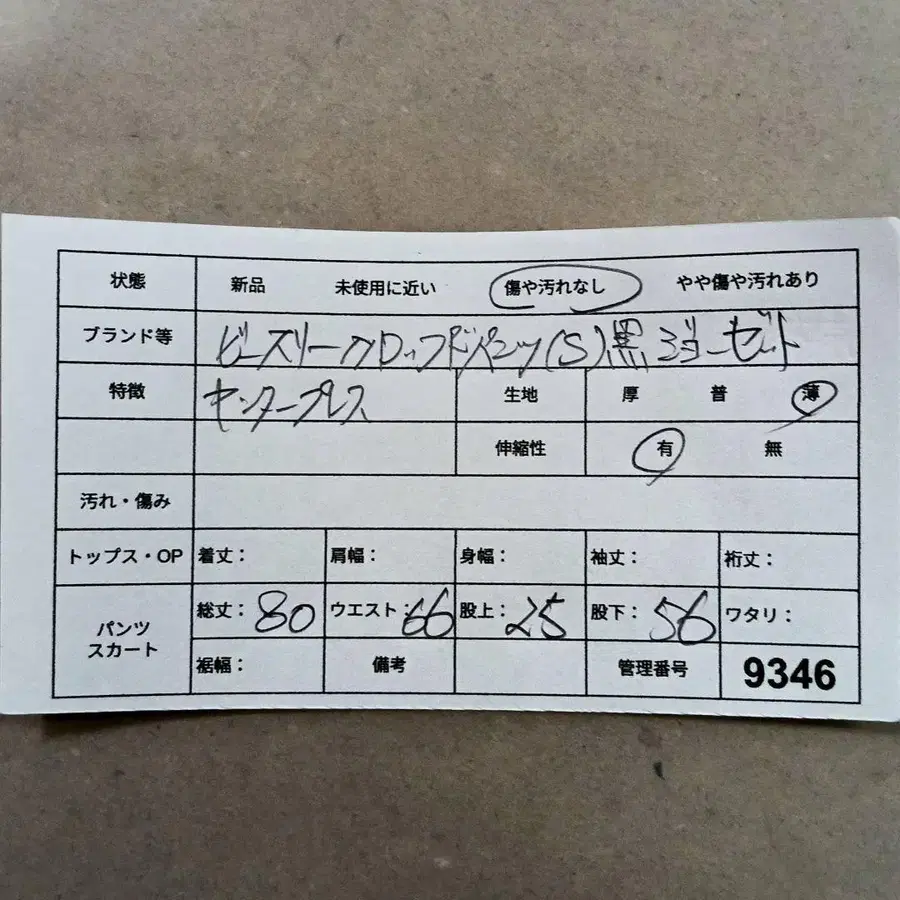 状態 新品 未使用に近い 傷や汚れなし やや傷や汚れあり
ブランド等 ビースリークロップドパンツ(S)黒ジョーゼット
特徴 センタープレス 生地 厚 普 薄
伸縮性 有 無
汚れ・傷み
トップス・OP 着丈： 肩幅： 身幅： 袖丈： 裄丈：
パンツ スカート 総丈：80 ウエスト：66 股上：25 股下：56 ワタリ：
裾幅： 備考 管理番号 9346